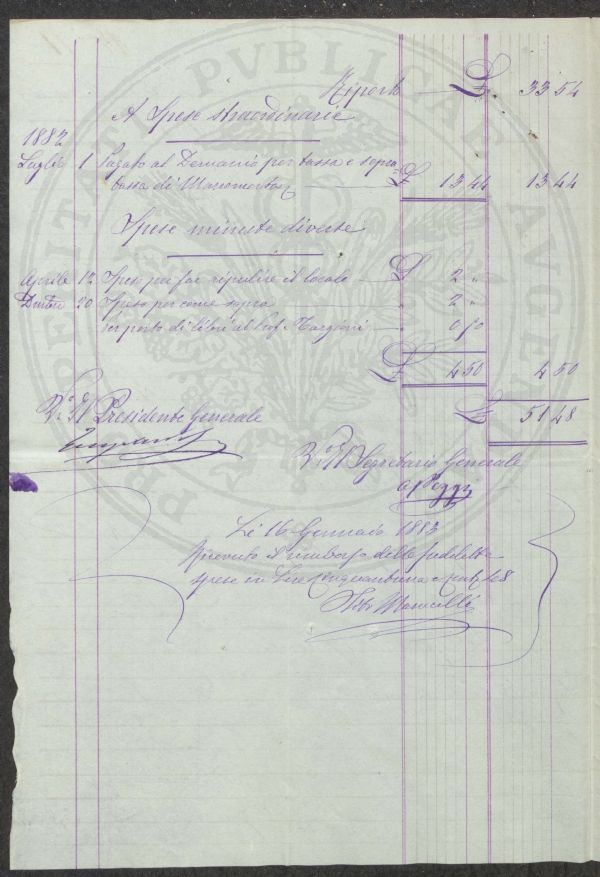 Riporto £ 33 54
A Spese straordinarie
1882
Luglio 1 Pagato al Demanio per tassa e sopra
tassa di Manomorta £ 13 44 13 44
Spese minute diverse
Aprile 12 Spese per far ripulire il locale £ 2 "
20 Spese per come sopra " 2 "
Per porto di libri al Prof. Targioni " 0 50
£ 4 50 4 50
£ 51 48
V.º Il Presidente Generale
V.º Il Segretario Generale
Li 16 Gennaio 1883
Ricevuto il rimborso delle suddette
spese in Lire cinquantuna e cent. 48
PROSPERITATI PVBLICAE AVGENDAE